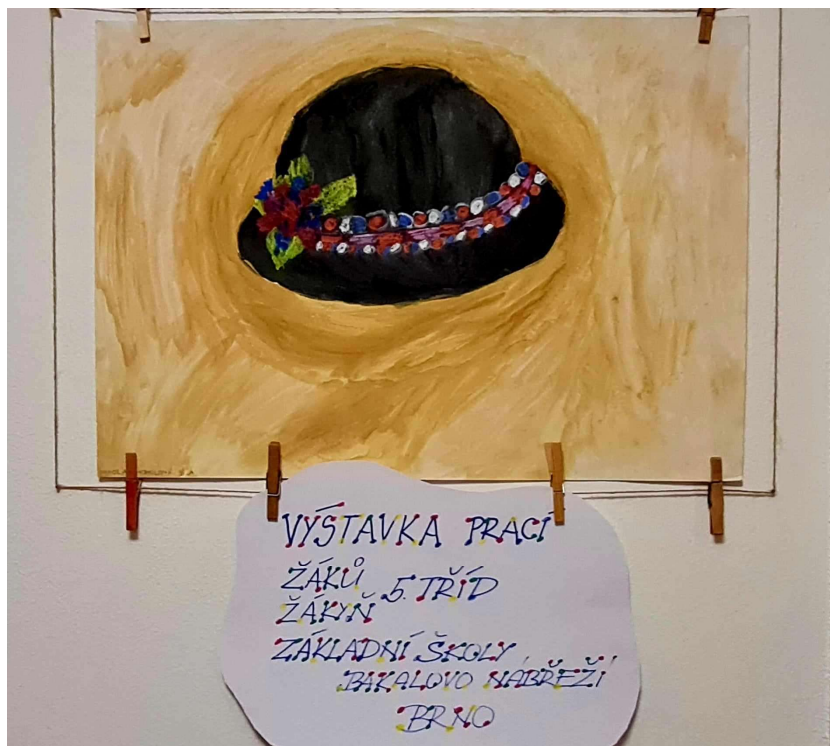 VÝSTAVKA PRACÍ
ŽÁKŮ
5. TŘÍD
ŽÁKYŇ
ZÁKLADNÍ ŠKOLY
BAKALOVO NÁBŘEŽÍ
BRNO